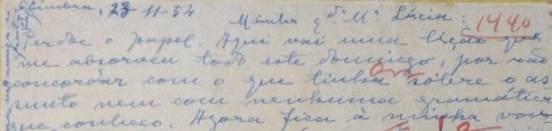 Coimbra, 23-11-54
Minha qdª Mª Lúcia: 1440
Perdoe o papel. Aqui vai uma lição que
me absorveu todo este domingo, por não
concordar com o que tinha sobre o as
sunto nem com nenhuma gramática
que conheço. Agora fica à minha von